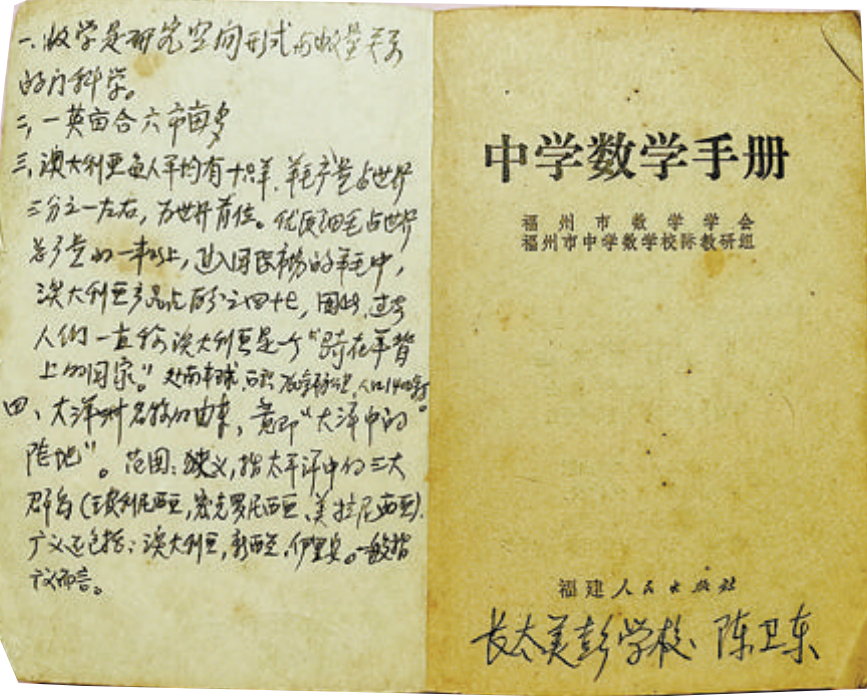 一、数学是研究空间形式与数量关系
的门科学。
二、一英亩合六市亩多
三、澳大利亚每人平均有十只羊,羊毛产量占世界
三分之一左右,为世界首位。优质细毛占世界
总产量的一半以上,进入国际市场的羊毛中,
澳大利亚产品占百分之四十七,因此,过去
人们一直称澳大利亚是一个“骑在羊背
上的国家”。处南半球,人口1400多万。
四、大洋州名称的由来,意即“大洋中的
陆地”。范围:狭义,指太平洋中的三大
群岛(波利尼西亚,密克罗尼西亚、美拉尼西亚)。
广义还包括:澳大利亚,新西兰,伊里安。一般指
广义而言。
中学数学手册
福州市数学学会
福州市中学数学校际教研组
福建人民出版社
长太美彭学校 陈卫东